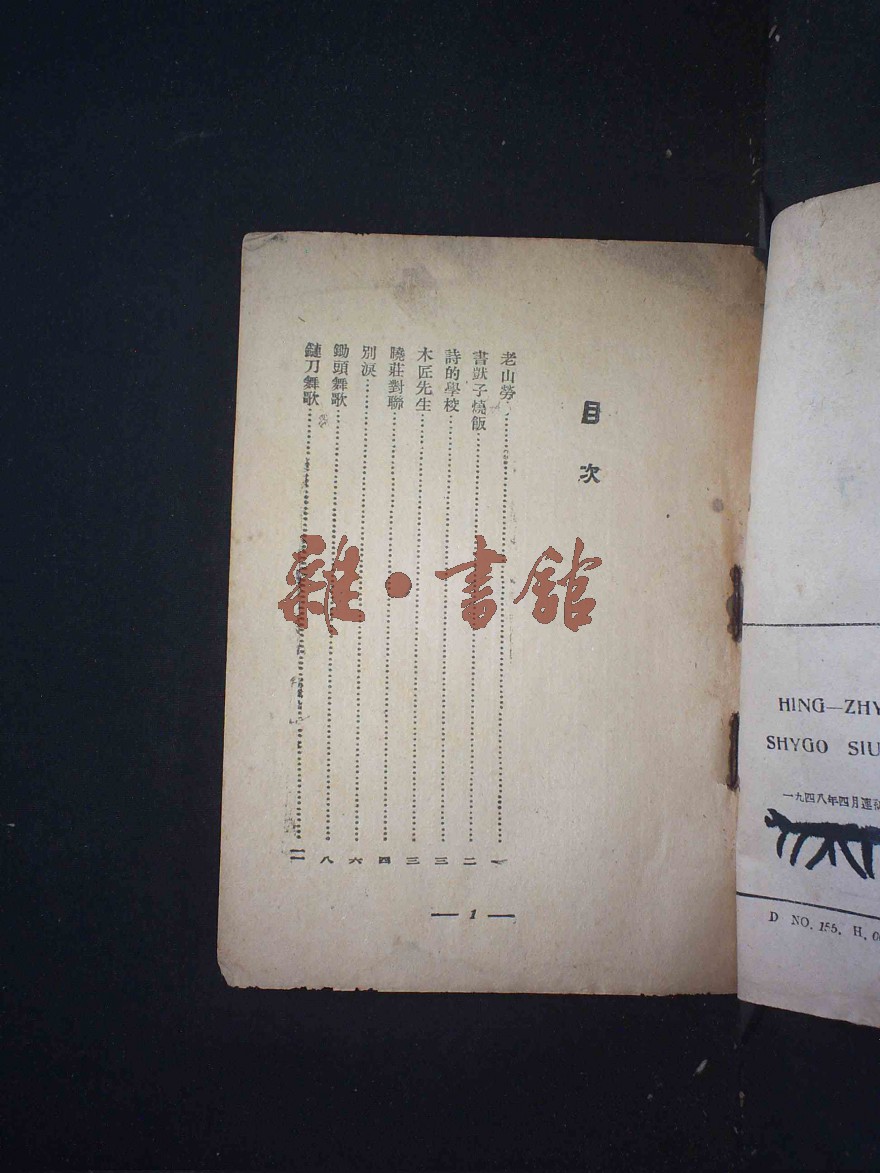 目次
老山勞……一
書獃子燒飯……二
詩的學校……三
木匠先生……三
曉莊對聯……四
別淚……六
鋤頭舞歌……八
鐮刀舞歌……一一
— 1 —
雜·書館
HING—ZHY
SHYGO SIU
一九四八年四月連
D NO. 155. H.